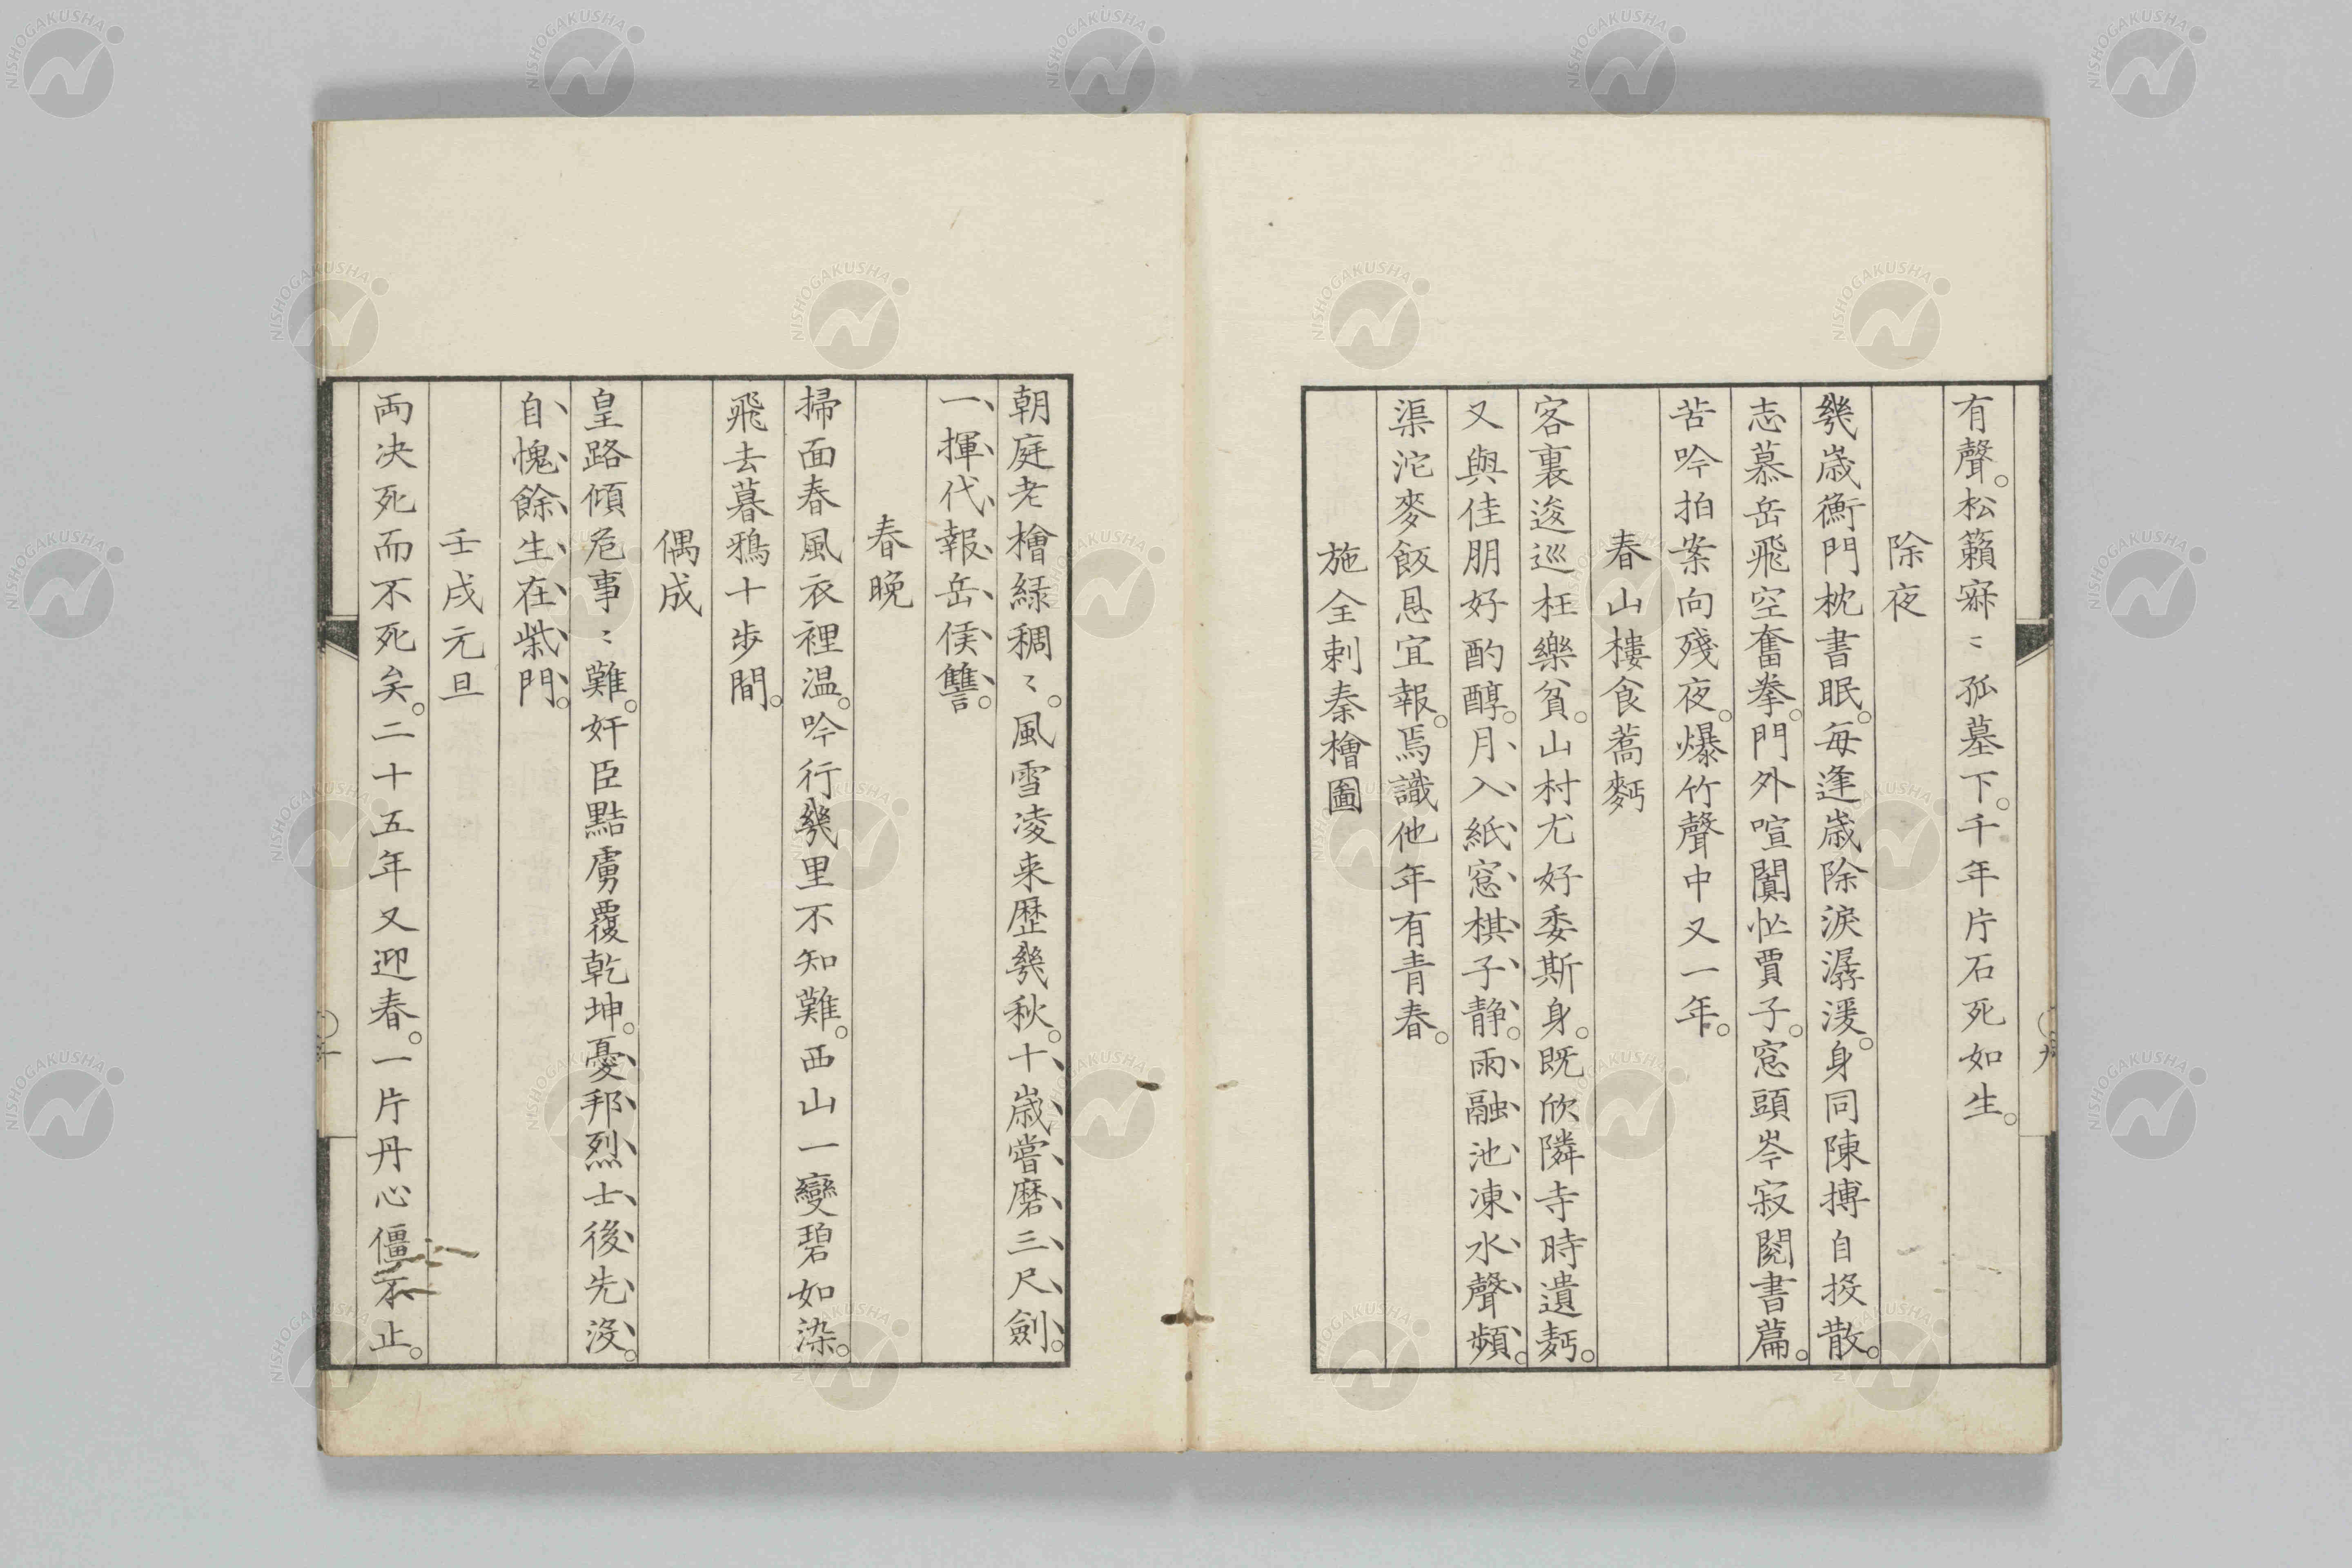 有聲。松籟寂〻孤墓下。千年片石死如生。
除夜
幾歳衡門枕書眠。毎逢歳除淚潺湲。身同陳摶自投散。
志慕岳飛空奮拳。門外喧闐忙賈子。窓頭岑寂閲書篇。
苦吟拍案向殘夜。爆竹聲中又一年。
春山樓食蕎麪
客裏逡巡枉樂貧。山村尤好委斯身。既欣隣寺時遺麪。
又與佳朋好酌醇。月入紙窓棋子静。雨融池凍水聲頻。
渠沱麥飯恩宜報。焉識他年有青春。
施全刺秦檜圖
朝庭老檜緑稠〻。風雪凌来歴幾秋。十歳嘗磨三尺劍。
一揮代報岳侯讐。
春晩
掃面春風衣裡温。吟行幾里不知難。西山一變碧如染。
飛去暮鴉十歩間。
偶成
皇路傾危事〻難。奸臣黠虜覆乾坤。憂邦烈士後先沒。
自愧餘生在柴門。
壬戌元旦
両决死而不死矣。二十五年又迎春。一片丹心僵不止。
NISHOGAKUSHA